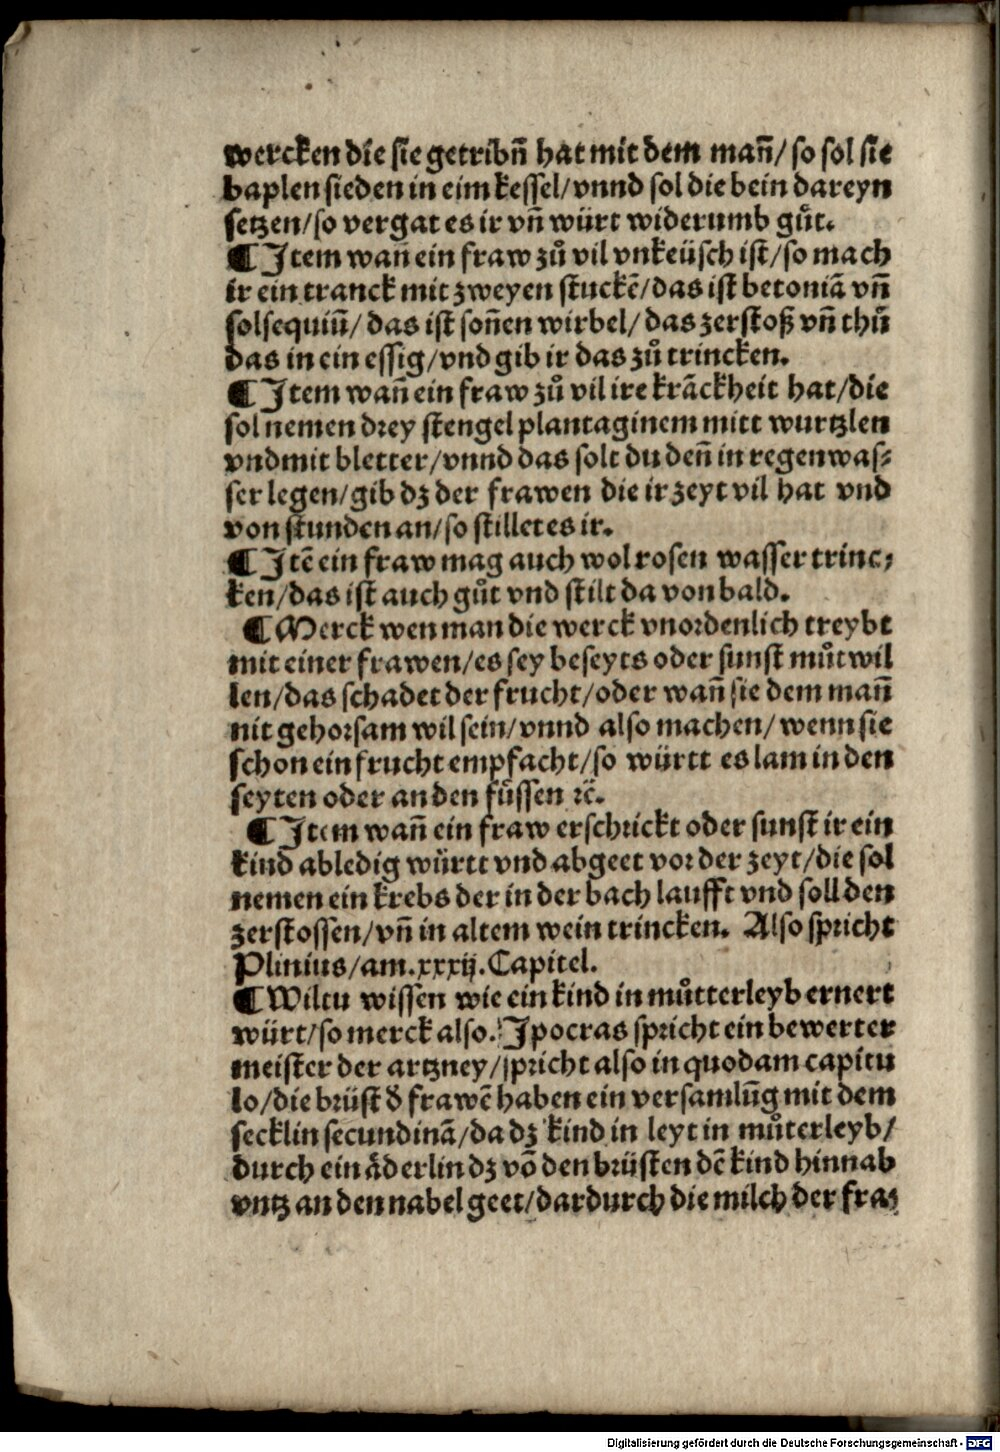 wercken die sie getribñ hat mit dem mañ/ so sol sie
baplen sieden in eim kessel/vnnd sol die bein dareyn
setzen/so vergat es ir vñ würt widerumb gůt.
¶ Item wañ ein fraw zů vil vnkeüsch ist/so mach
ir ein tranck mit zweyen stuckẽ/das ist betoniã vñ
solsequiũ/ das ist soñen wirbel/ das zerstoß vñ thů
das in ein essig/vnd gib ir das zů trincken.
¶ Item wañ ein fraw zů vil ire krãckheit hat/die
sol nemen drey stengel plantaginem mitt wurtzlen
vndmit bletter/vnnd das solt du deñ in regenwas⸗
ser legen/gib dz der frawen die ir zeyt vil hat vnd
von stunden an/so stillet es ir.
¶ Itẽ ein fraw mag auch wol rosen wasser trinc⸗
ken/das ist auch gůt vnd stilt da von bald.
¶ Merck wen man die werck vnordenlich treybt
mit einer frawen/es sey beseyts oder sunst můtwil
len/das schadet der frucht/oder wañ sie dem mañ
nit gehorsam wil sein/vnnd also machen/wenn sie
schon ein frucht empfacht/so württ es lam in den
seyten oder an den fůssen ꝛc̃.
¶ Item wañ ein fraw erschrickt oder sunst ir ein
kind abledig württ vnd abgeet vor der zeyt/die sol
nemen ein krebs der in der bach laufft vnd soll den
zerstossen/vñ in altem wein trincken. Also spricht
Plinius/am.xxxij.Capitel.
¶ Wiltu wissen wie ein kind in můtterleyb ernert
würt/so merck also. Ipocras spricht ein bewerter
meister der artzney/spricht also in quodam capitu
lo/die brüst d̕ frawẽ haben ein versamlũg mit dem
secklin secundinã/da dz kind in leyt in můterleyb/
durch ein äderlin dz võ den brüsten dẽ kind hinnab
vntz an den nabel geet/dardurch die milch der fra⸗
Digitalisierung gefördert durch die Deutsche Forschungsgemeinschaft - DFG